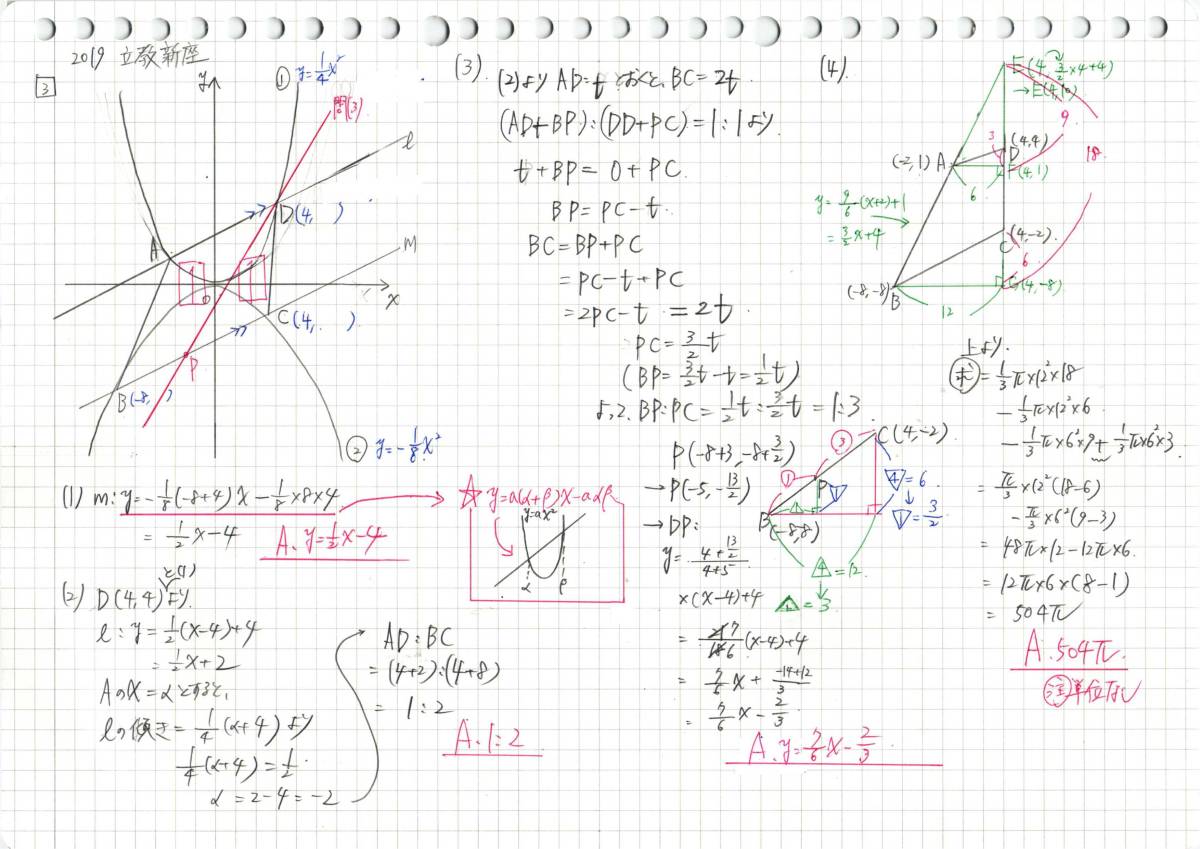 2019 立教新座
3
y
① y=1/4x²
問(3)
l
D(4, )
A
m
1
1
O
x
C(4, )
P
B(-8, )
② y=-1/8x²
(1) m: y=-1/8(-8+4)x-1/8×8×4
=1/2x-4
A. y=1/2x-4
☆ y=a(α+β)x-aαβ
y=ax²
α β
(2) D(4,4)と(1)より
l: y=1/2(x-4)+4
=1/2x+2
Aのx=αとすると、
lの傾き=1/4(α+4)より
1/4(α+4)=1/2
α=2-4=-2
AD:BC
=(4+2):(4+8)
=1:2
A. 1:2
(3). (2)よりAD=tとおくと、BC=2t
(AD+BP):(DD+PC)=1:1より
t+BP=0+PC
BP=PC-t.
BC=BP+PC
=PC-t+PC
=2PC-t=2t
PC=3/2t
(BP=3/2t-t=1/2t)
よって、BP:PC=1/2t:3/2t=1:3
P(-8+3, -8+3/2)
→P(-5, -13/2)
→DP:
y=(4+13/2)/(4+5)
×(x-4)+4
=7/6(x-4)+4
=7/6x+(-14+12)/3
=7/6x-2/3
A. y=7/6x-2/3
① ③
C(4,-2)
P
B(-8,8)
4=6
1=3/2
1
4=12
1=3
(4).
E(4, 3/2×4+4)
→E(4,10)
9
3
(4,4)
D
18
(-2,1) A
F(4,1)
6
y=9/6(x+2)+1
=3/2x+4
(4,-2)
C
6
(-8,-8) B
G(4,-8)
12
上より.
求=1/3π×12²×18
-1/3π×12²×6
-1/3π×6²×9+1/3π×6²×3
=π/3×12²(18-6)
-π/3×6²(9-3)
=48π×12-12π×6
=12π×6×(8-1)
=504π
A. 504π.
注 単位なし